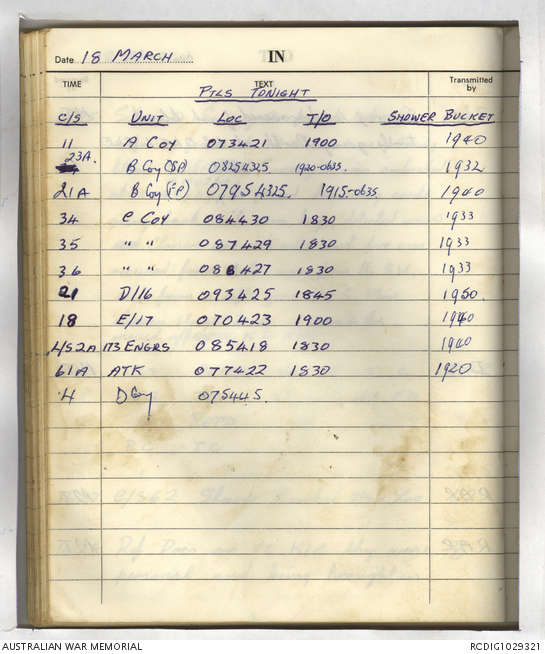 Date 18 MARCH IN
TIME TEXT Transmitted by
PTLS TONIGHT
C/S UNIT LOC T/O SHOWER BUCKET
11 A Coy 073421 1900 1940
23A. B Coy (SP) 08254325 1920-0635. 1932
21A B Coy (FP) 07954325. 1915-0635 1940
34 C Coy 084430 1830 1933
35 " " 087429 1830 1933
36 " " 086427 1830 1933
21 D/16 093425 1845 1950.
18 E/17 070423 1900 1940
4/S2A 173 ENGRS 085418 1830 1940
61A ATK 077422 1830 1920
4 D Coy 075445.
AUSTRALIAN WAR MEMORIAL RCDIG1029321